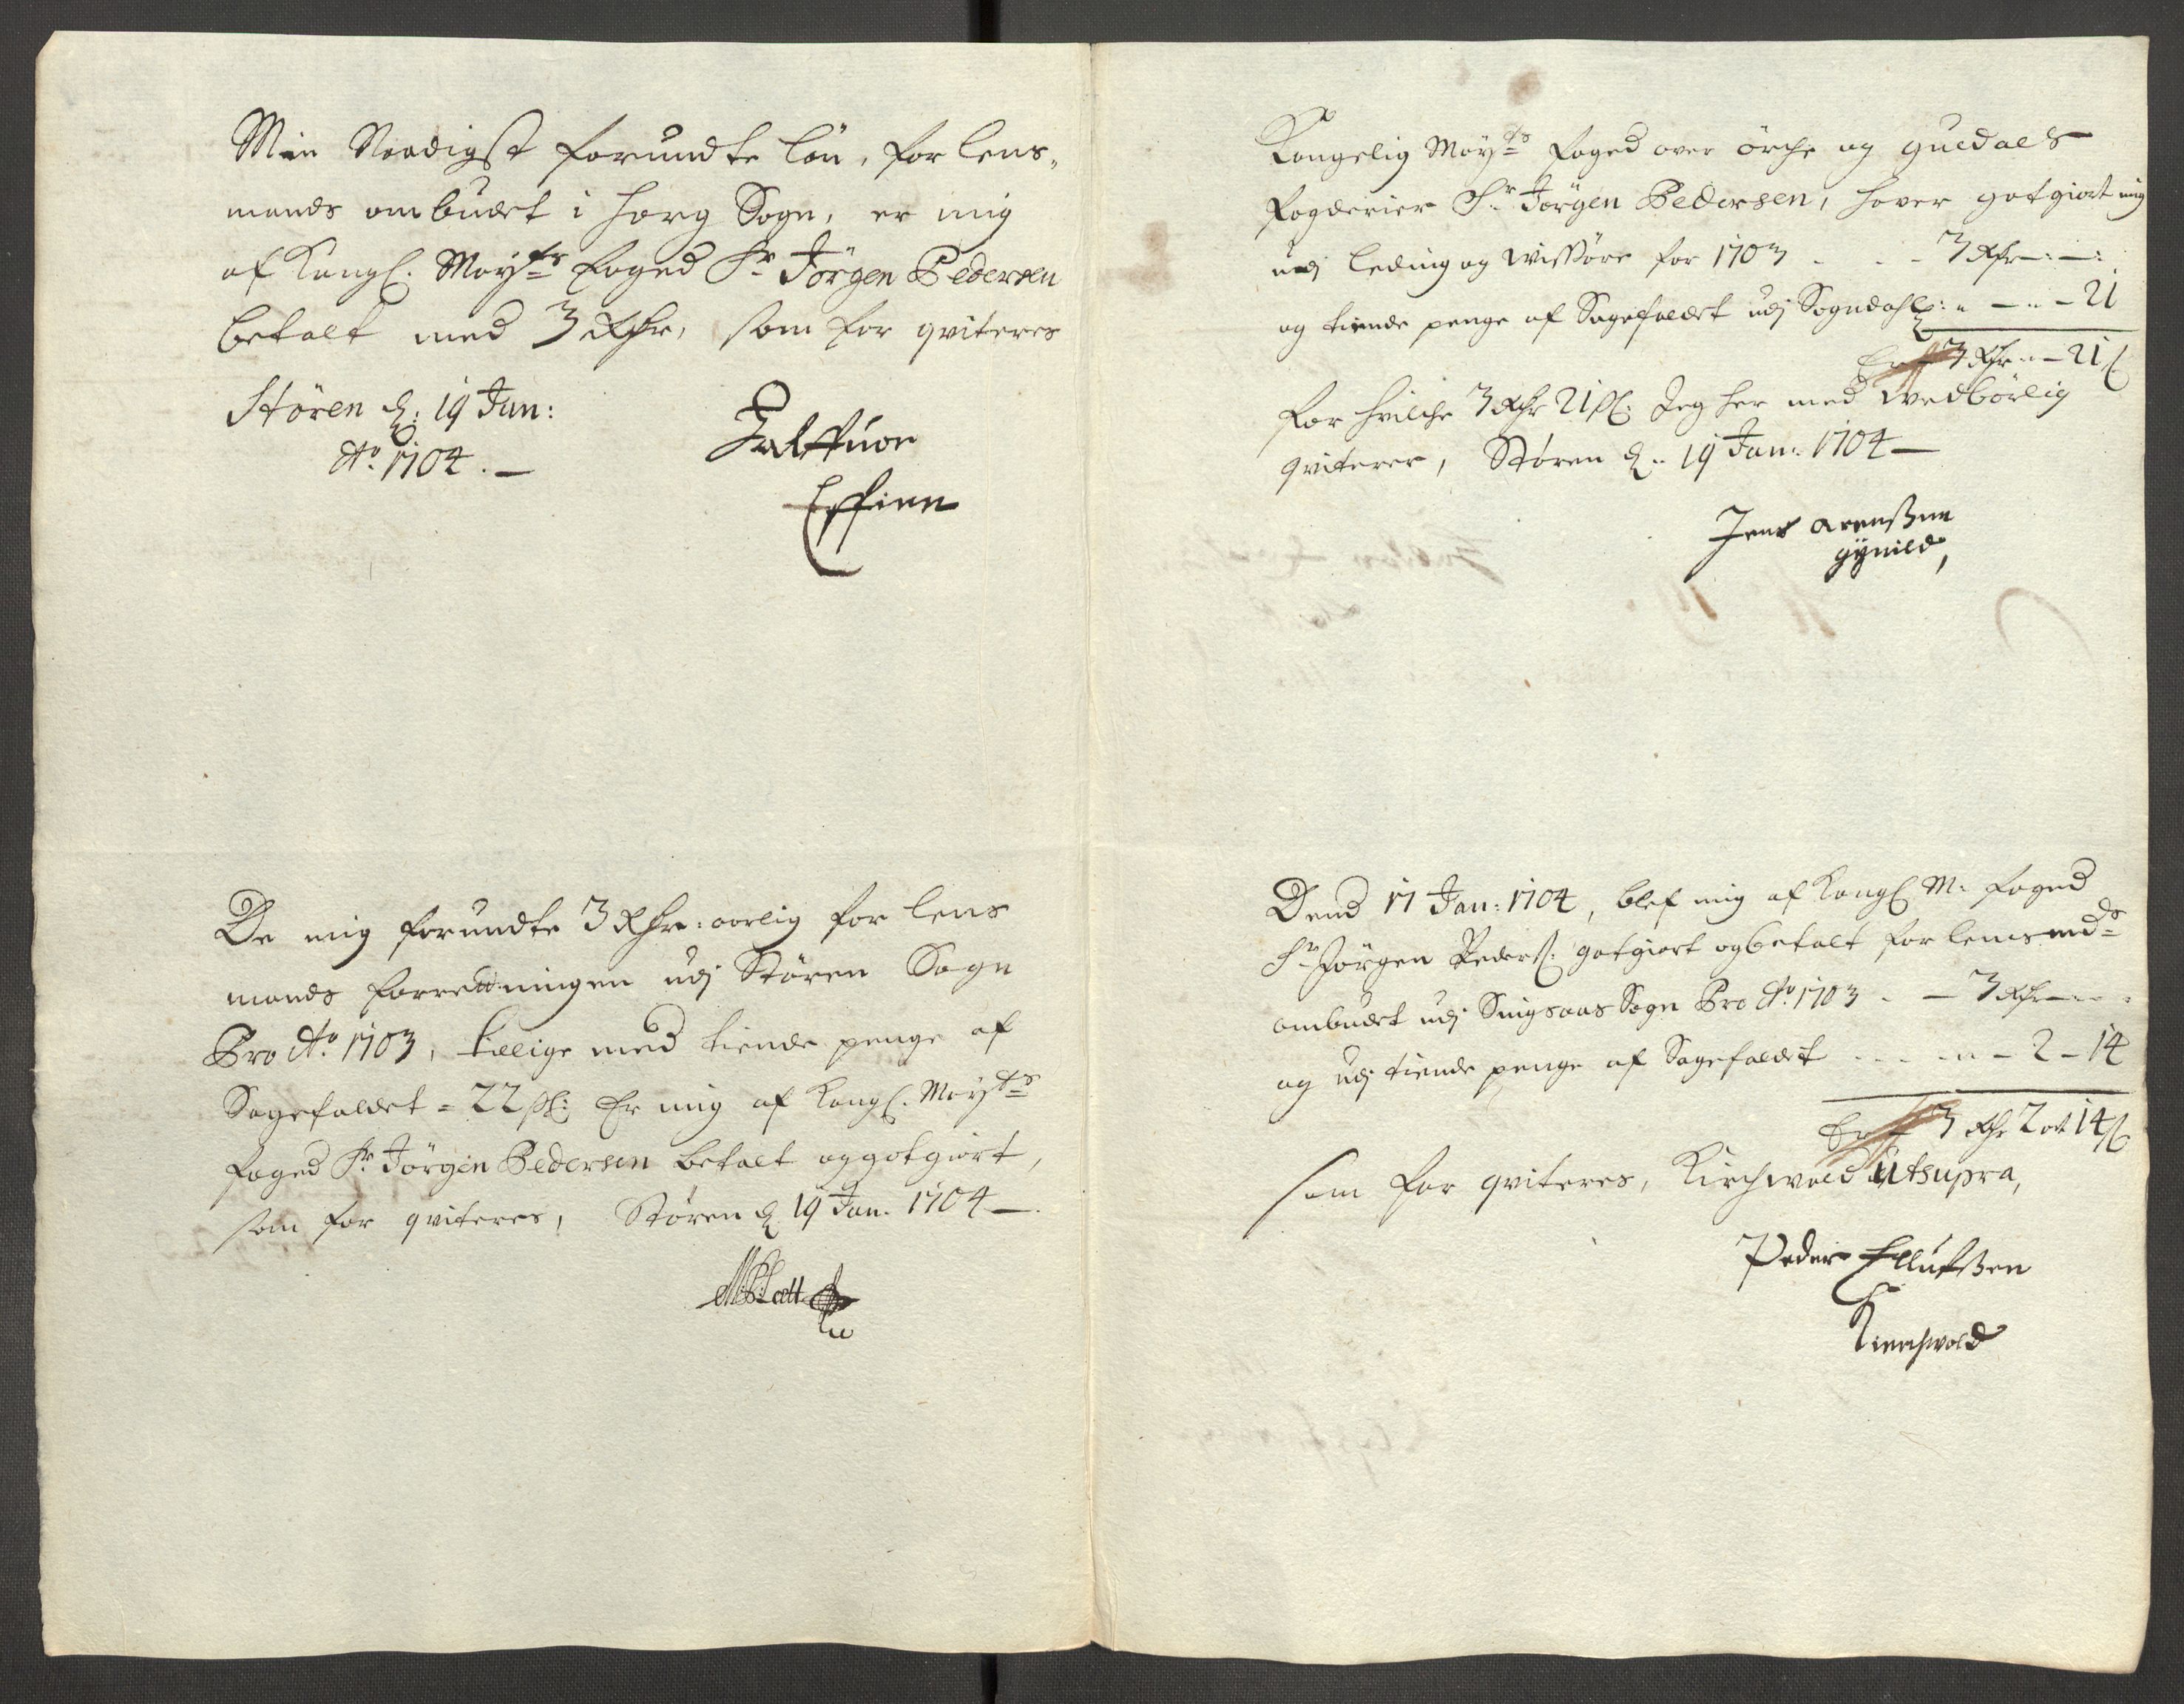 Min Naadigst forundte lön, for lens-
mands ombudet i Horg Sogn, er mig
af Kongl. Mayts foged Sr Jörgen Pedersen
betalt med 3 Rdr, som for qviteres
Stören d: 19 Jan:
Ao 1704.—
De mig forundte 3 Rdr: aarlig for lens
mands forretningen udj Stören Sogn
Pro Ao 1703, tillige med tiende penge af
Sagefaldet = 22 sk: Er mig af Kongl. Mayts
foged Sr Jörgen Pedersen betalt og gotgiort,
som for qviteres, Stören d 19 Jan. 1704—.
Kongelig Mayts foged over örche og guldals
fogderier Sr Jörgen Pedersen, hafver gotgiort mig
udj leding og wissöre for 1703 - - - 3 Rdr—:—:
og tiende penge af Sagefaldet udj Sogndahl: " — " — 21
Er 3 Rdr - " — 21 s
for hvilche 3 Rdr 21 sk. Jeg her med wedbörlig
qviterer, Stören d. 19 Jan: 1704—
Jens arenßen
gÿnild,
Dend 17 Jan: 1704, blef mig af Kongl M: foged
Sr Jörgen Peders: gotgiort og betalt for lensmds
ombudet udj Singsaas Sogn Pro Ao 1703 - — 3 Rdr - - -
og udj tiende penge af Sagefaldet - - - - " - 2 - 14
Er 3 Rdr 2 ort 14 s
som for qviteres, Kirchwold utsupra,
Peder Ellufßen
Kierchwold